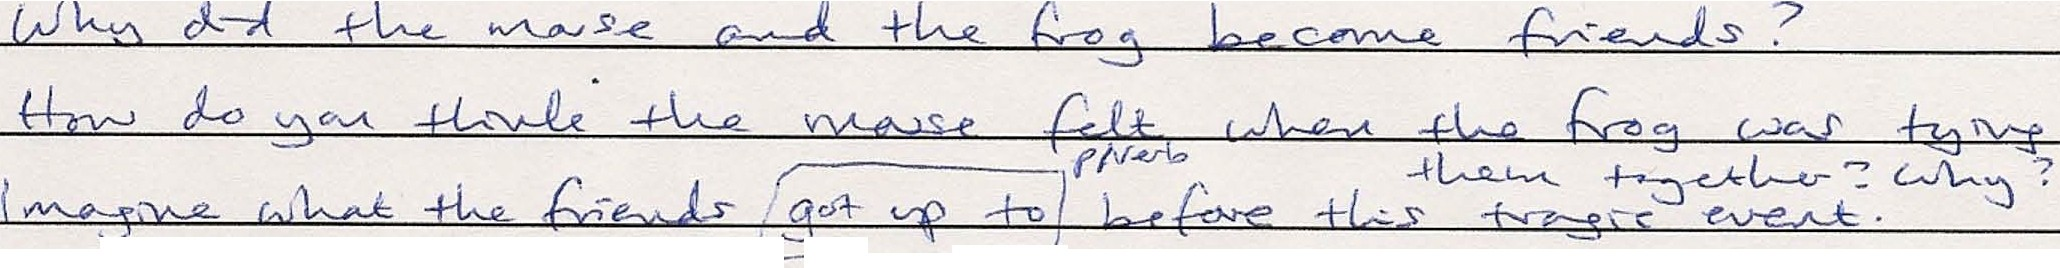 Why did the mouse and the frog become friends?
How do you think the mouse felt when the frog was tying
them together? Why?
p/verb
Imagine what the friends got up to before this tragic event.